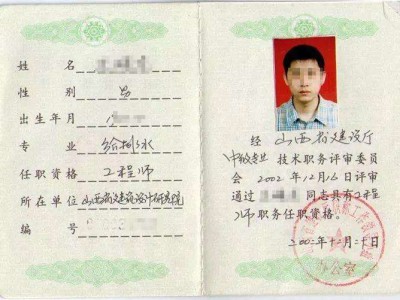 姓 名
性 别 男
出生年月
专 业 给排水
任职资格 工程师
所在单位 山西省建筑设计研究院
编 号
经 山西省建设厅
中级专业 技术职务评审委员
会 2002 年 12 月 16 日评审
通过 同志具有 工程
师 职务任职资格。
2002 年 十二月 二十日
办公室